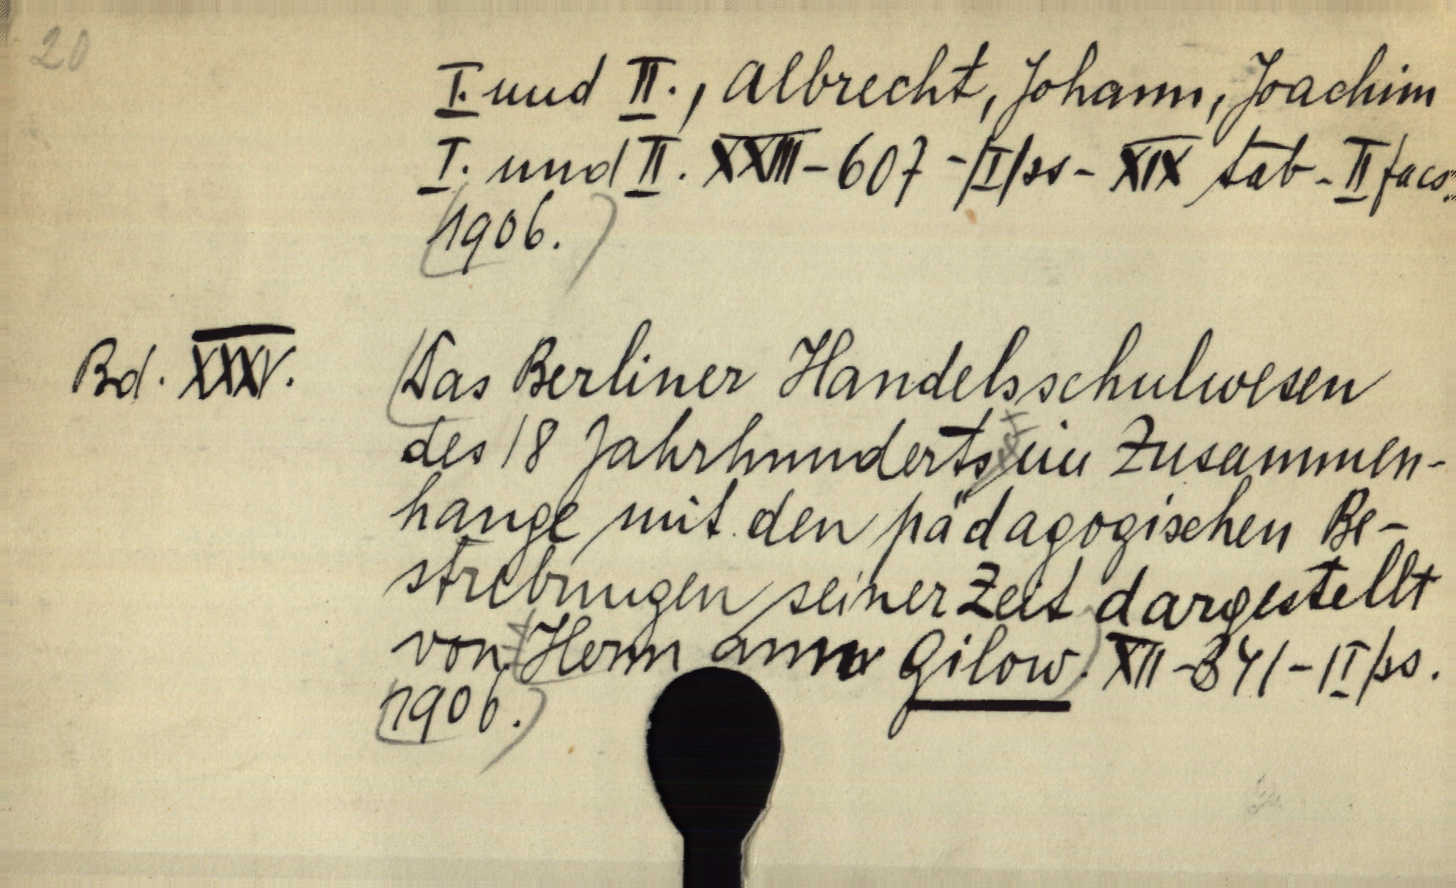 20
I. und II., Albrecht, Johann, Joachim
I. und II. XXIII-607-/I/ss-XIX tab-II facs.
1906.
Bd. XXXV. Das Berliner Handelsschulwesen
des 18 Jahrhunderts im Zusammen-
hange mit den pädagogischen Be-
strebungen seiner Zeit dargestellt
von Hermann Gilow. XII-341-/I/ss.
1906.